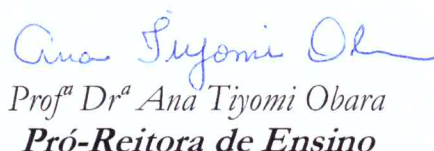 Ana Tiyomi Ob
Profª Drª Ana Tiyomi Obara
Pró-Reitora de Ensino